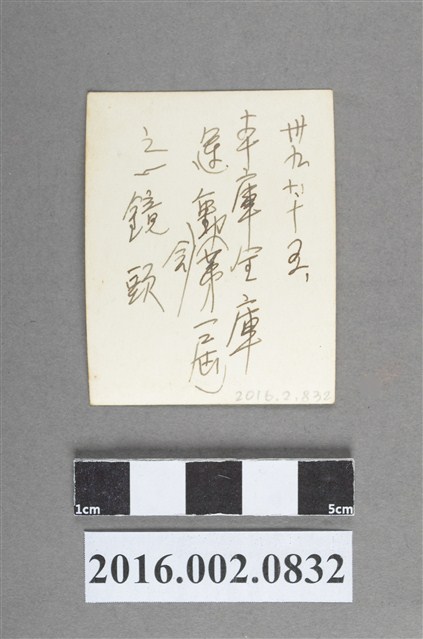 卅九六、十五、
本庫全庫
運動會第一屆
之一鏡頭
2016.2.832
1cm 5cm
2016.002.0832